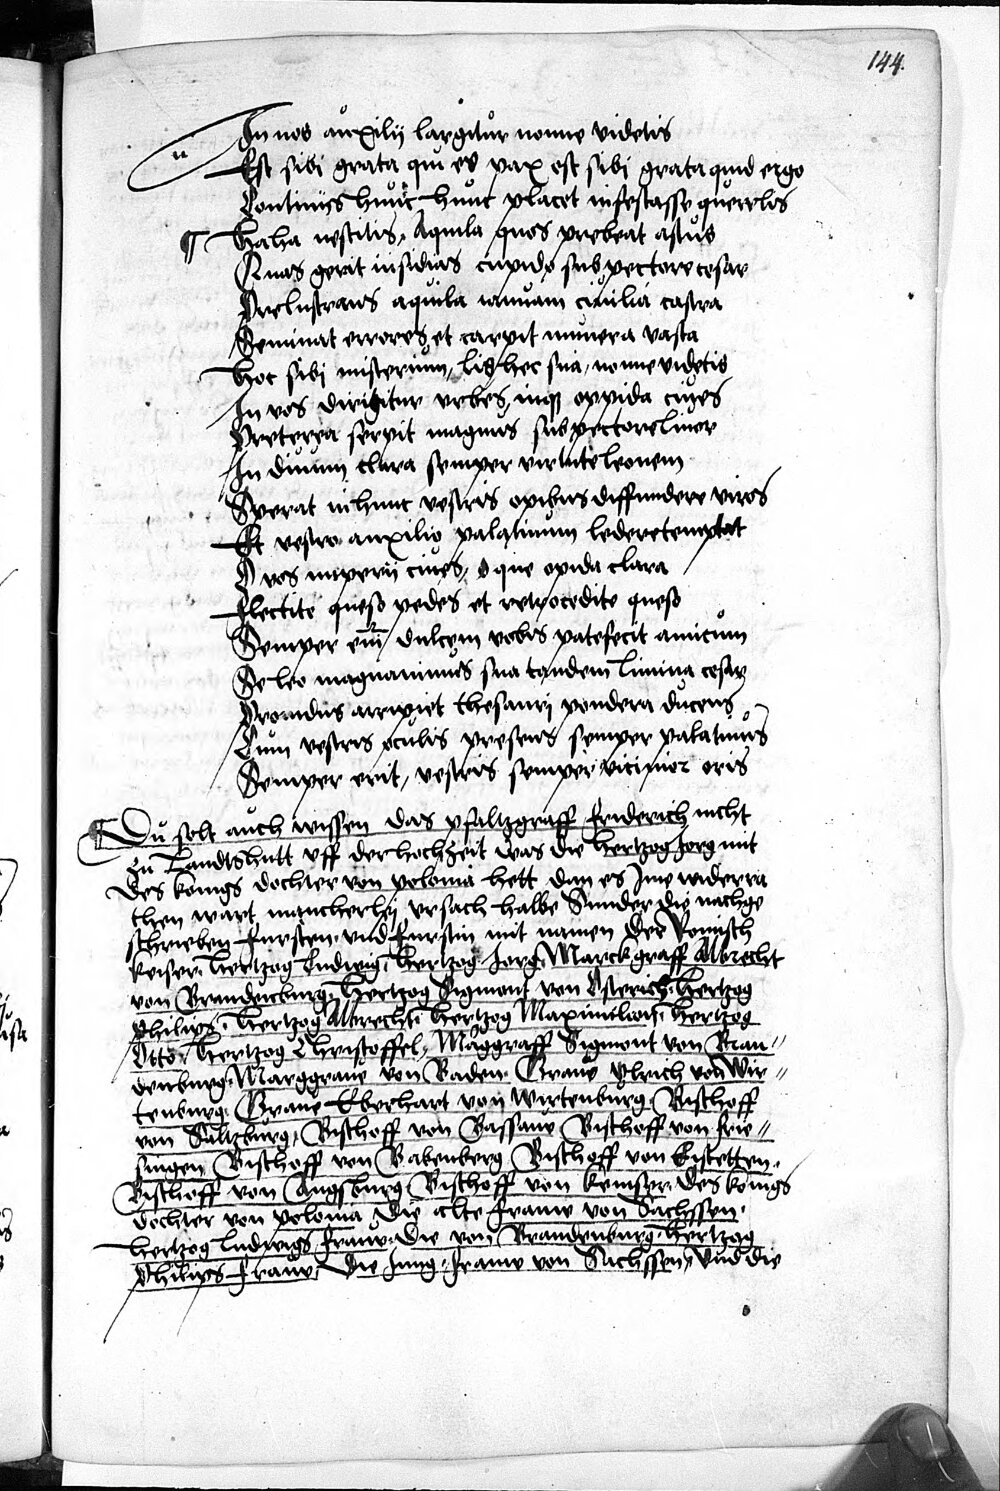 144.
In nos auxilij largitur nonne videtis
Est sibi grata qui es pax est sibi grata quid ergo
Continuis hunc placet infestasse querelis
¶ Haha nescitis, Aquila quos prebeat astus
Quas gerit insidias cupido sub pectore cesar
Prelustrans aquila ianuam ciuilia castra
Seminat errores et carpit munera vasta
Hoc sibi misterium, lis hec sua, nonne videtis
In vos dirigitur vrbes, inque oppida ciues
Preterea serpit magnus sub pectore liuor
In diuum clara semper virtute leonem
Sperat in hunc vestris opibus diffundere viros
Et vestro auxilio palatinum ledere temptat
O vos imperii ciues, o que opida clara
Flectite queso pedes et retrocedite queso
Semper eum dulcem vobis patefecit amicum
Se leo magnanimus sua tandem limina cesar
Promdus arripiet thesauri pondera ducens
Cum vestris oculis presens semper palatinus
Semper erit, vestris semper vicinior oris
¶ Du solt auch wissen das pfaltzgraff friderich nicht
zu Landtshutt vff der hochzeit was die hertzog Jorg mit
des konigs dochter von polonia hett dan es Ime widerra
then wart mancherley vrsach halbe Sunder die nachge
schrieben fursten vnd furstin mit namen Der Romisch
keiser, hertzog Ludwig, hertzog Jorg, Marckgraff Albrecht
von Brandenburg, hertzog Sigmont von Osterich, hertzog
Philips, hertzog Albrecht, hertzog Maximilian, hertzog
Otto, hertzog Christoffel, Marggraff Sigmont von Bran//
denburg, Marggraue von Baden, Graue vlrich von Wir//
tenburg, Graue Eberhart von wirtenburg, Bischoff
von Saltzburg, Bischoff von Passauw Bischoff von frie//
singen Bischoff von Babenberg Bischoff von Eistetten,
Bischoff von Augsburg Bischoff von kemser, des konigs
dochter von polonia die alte frauw von Sachssen,
hertzog ludwigs frauw, die von Brandenburg, hertzog
Philips frauw, Die Jung frauw von Sachssen, vnd die